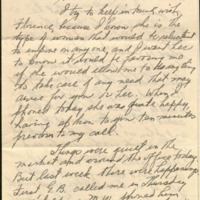 I try to keep in touch with
Florence because I know she is the
type of woman that would be reluctant
to confide in anyone, and I want Lee
to know it would be favoring me
if she would allow me to
to take care of any need that may
arise for her or Lee. When I
phoned today she was quite happy,
having of him to you ten minutes
previous to my call.
Things were quiet in the
market and around the office today.
But last week there were happenings.
First E.B. called me in Thursday
M.W. phoned from